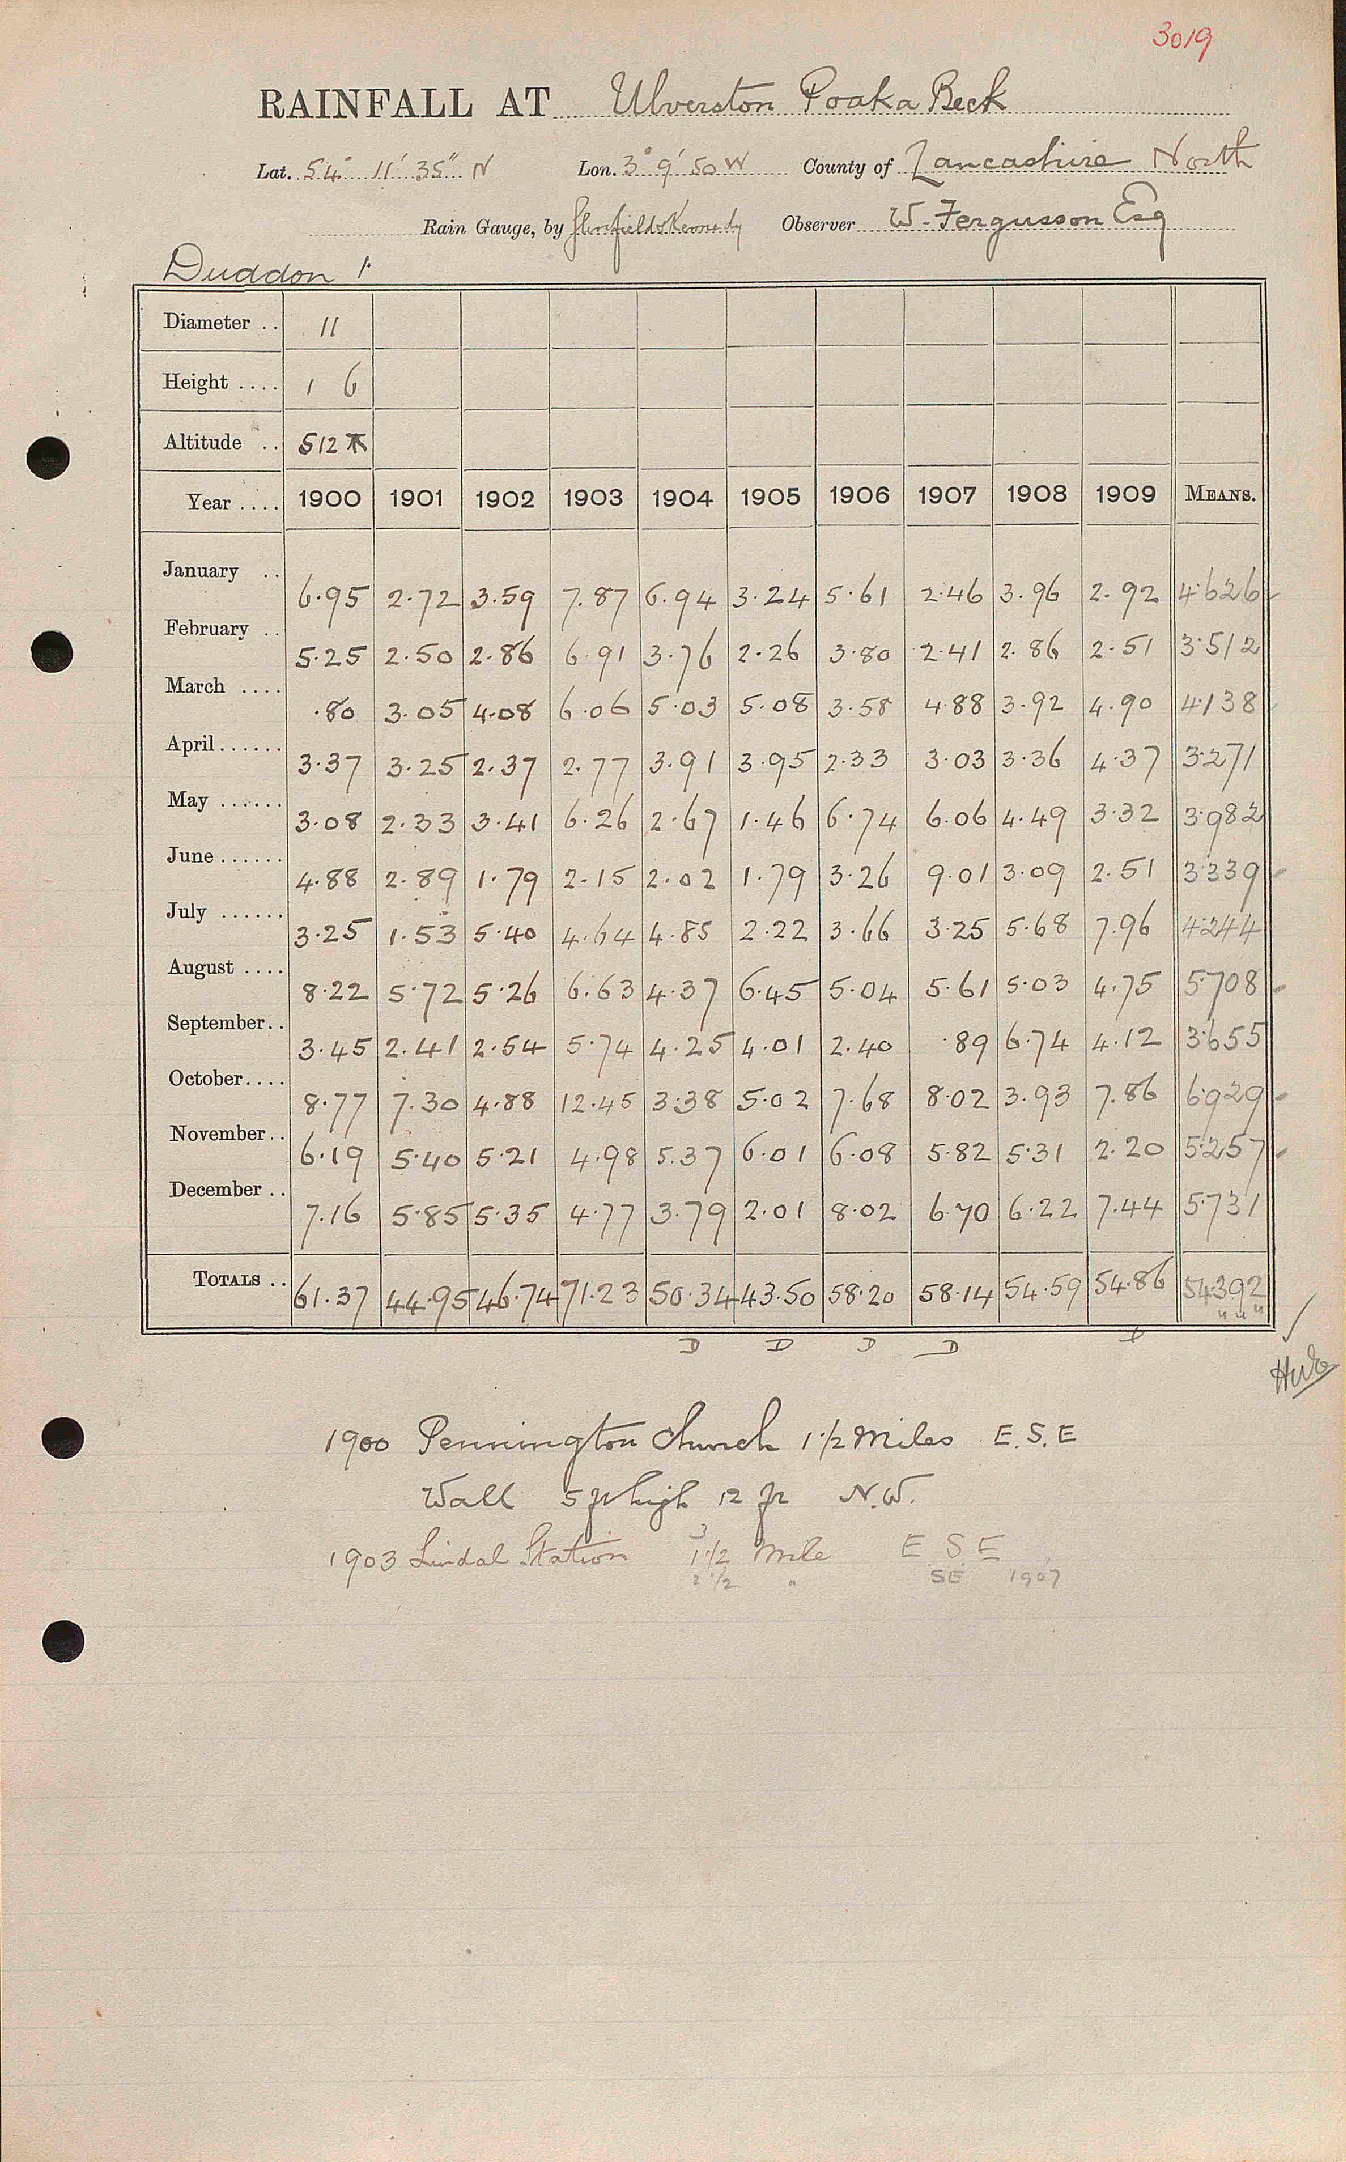 3019
RAINFALL AT Ulverston Poaka Beck
Lat. 54° 11' 35" N Lon. 3° 9' 50 W County of Lancashire North
Rain Gauge, by Glenfield & Kennedy Observer W. Fergusson Esq
Duddon 1.
Diameter .. 11
Height .... 1 6
Altitude .. 512
Year .... 1900 1901 1902 1903 1904 1905 1906 1907 1908 1909 MEANS.
January .. 6.95 2.72 3.59 7.87 6.94 3.24 5.61 2.46 3.96 2.92 4.626
February .. 5.25 2.50 2.86 6.91 3.76 2.26 3.80 2.41 2.86 2.51 3.512
March .... .80 3.05 4.08 6.06 5.03 5.08 3.58 4.88 3.92 4.90 4.138
April ...... 3.37 3.25 2.37 2.77 3.91 3.95 2.33 3.03 3.36 4.37 3.271
May ...... 3.08 2.33 3.41 6.26 2.67 1.46 6.74 6.06 4.49 3.32 3.982
June ...... 4.88 2.89 1.79 2.15 2.02 1.79 3.26 9.01 3.09 2.51 3.339
July ...... 3.25 1.53 5.40 4.64 4.85 2.22 3.66 3.25 5.68 7.96 4.244
August .... 8.22 5.72 5.26 6.63 4.37 6.45 5.04 5.61 5.03 4.75 5.708
September.. 3.45 2.41 2.54 5.74 4.25 4.01 2.40 .89 6.74 4.12 3.655
October.... 8.77 7.30 4.88 12.45 3.38 5.02 7.68 8.02 3.93 7.86 6.929
November.. 6.19 5.40 5.21 4.98 5.37 6.01 6.08 5.82 5.31 2.20 5.257
December .. 7.16 5.85 5.35 4.77 3.79 2.01 8.02 6.70 6.22 7.44 5.731
TOTALS .. 61.37 44.95 46.74 71.23 50.34 43.50 58.20 58.14 54.59 54.86 54.392
D D D D D
1900 Pennington Church 1 1/2 Miles E.S.E
Wall 5 ft high 12 ft N.W.
1903 Lindal Station 1 1/2 Mile E S E
2 1/2 " SE 1907